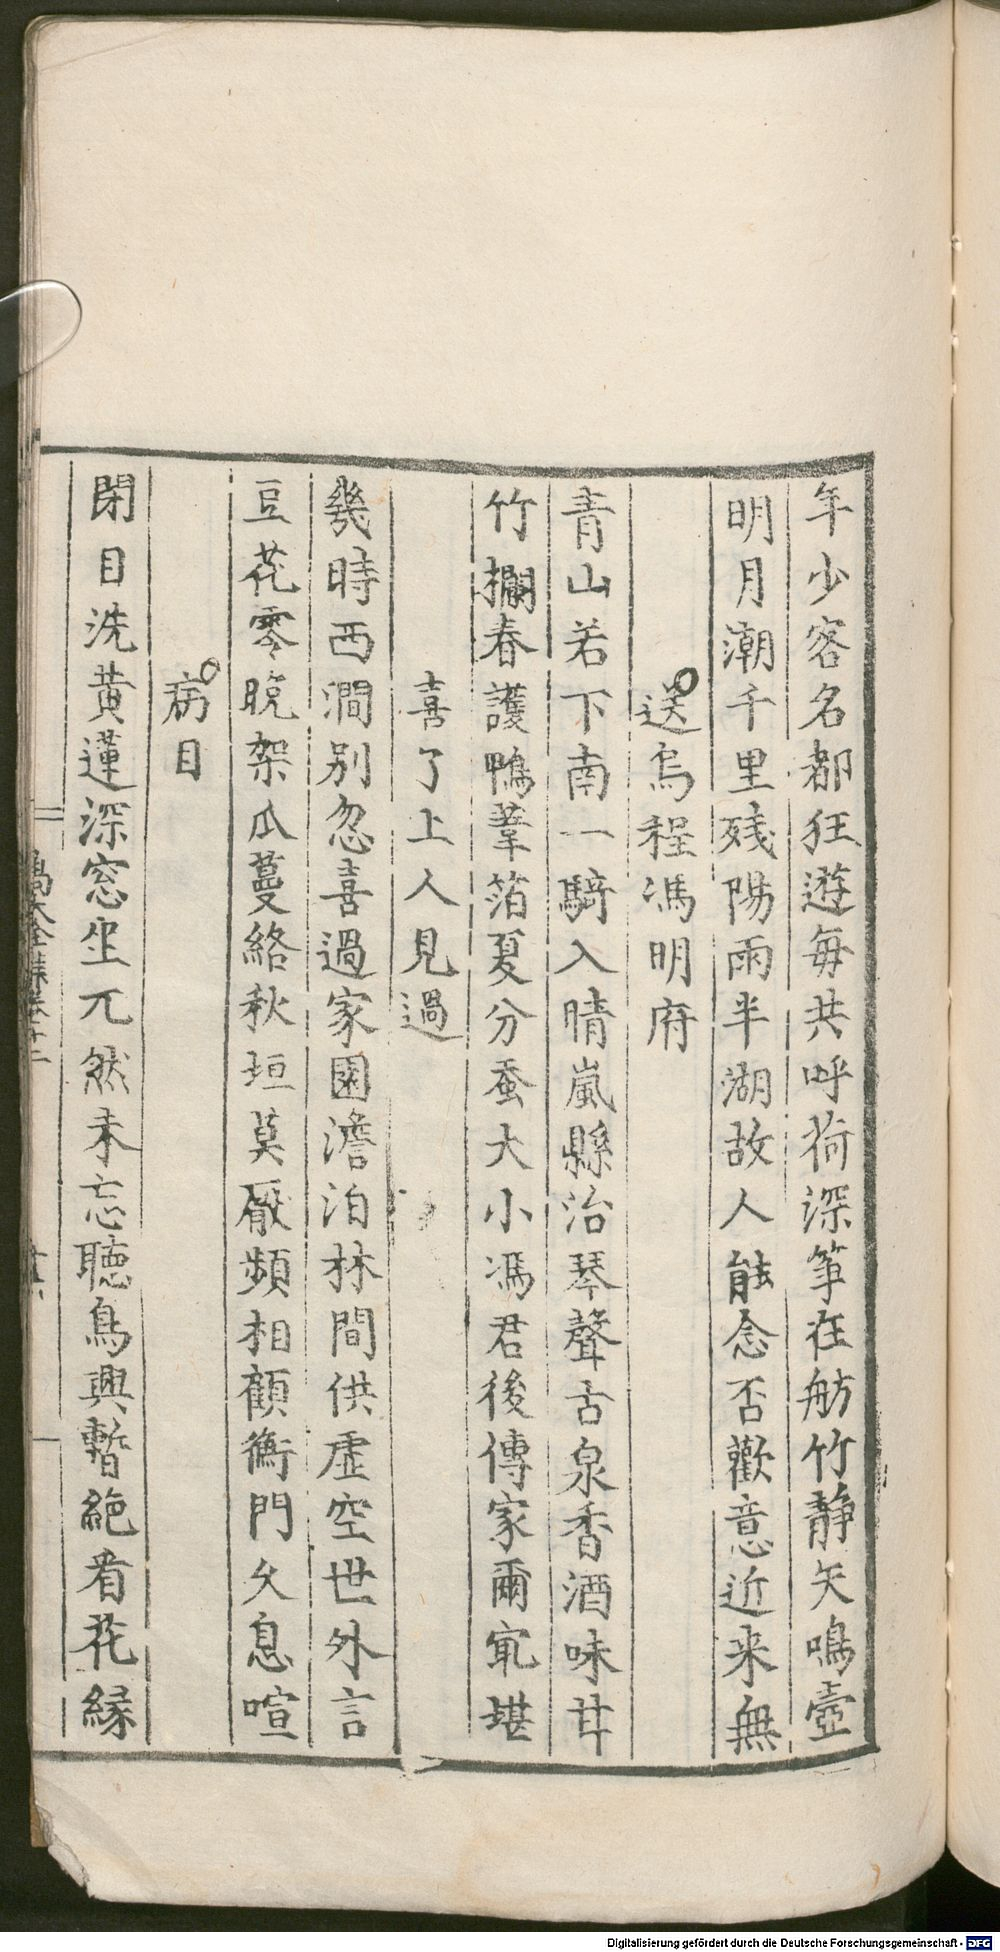 年少客名都狂遊每共呼荷深筝在舫竹静矢鳴壺
明月潮千里残陽雨半湖故人能念否歡意近来無
送烏程馮明府
青山若下南一騎入晴嵐縣治琴聲古泉香酒味甘
竹攔春護鴨葦箔夏分蚕大小馮君後傳家爾㝡堪
喜了上人見過
幾時西澗別忽喜過家園澹泊林間供虚空世外言
豆花零晩架瓜蔓絡秋垣莫厭頻相顧衡門久息喧
病目
閉目洗黄蓮深窓坐兀然未忘聴鳥興暫絶看花縁
大全集卷十二
Digitalisierung gefördert durch die Deutsche Forschungsgemeinschaft - DFG